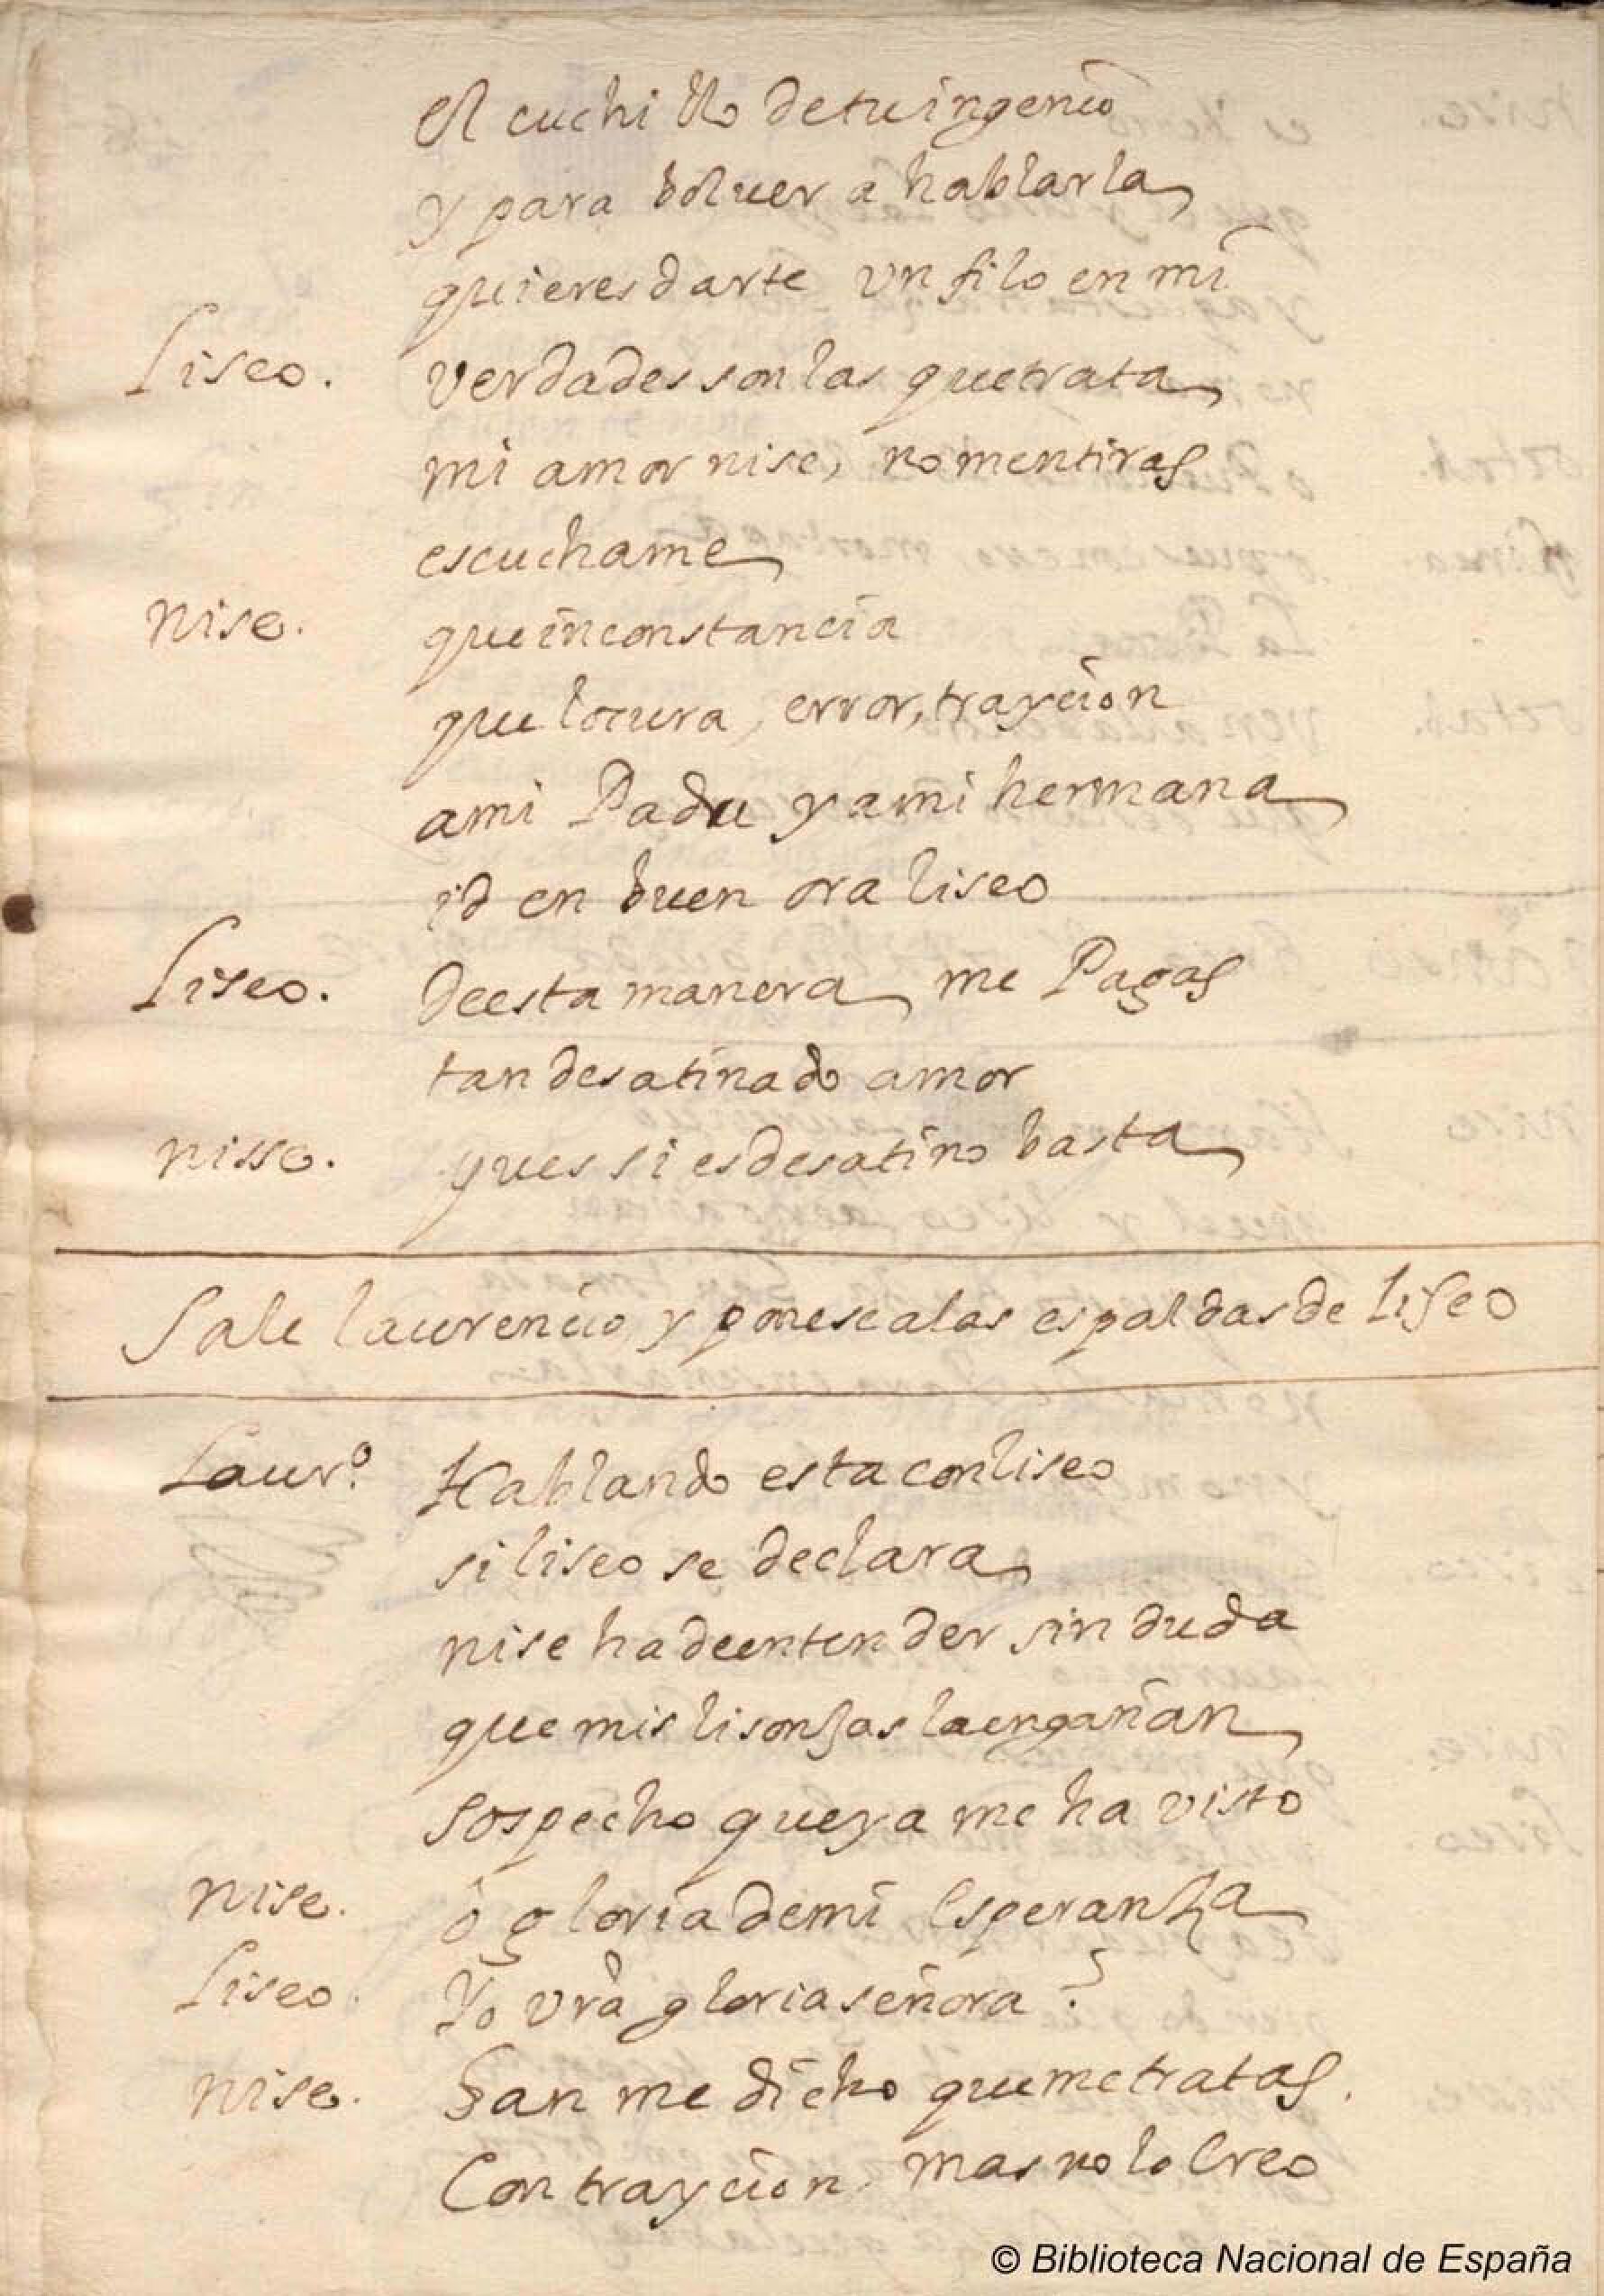 el cuchillo de tu ingenio
y para boluer a hablarla
quieres darte un filo en mi
Liseo. verdades son las que trata
mi amor nise, no mentiras
escuchame
nise. que inconstancia
que locura, error, trayçion
a mi Padre y a mi hermana
id en buen ora liseo
Liseo. de esta manera me Pagas
tan desatinado amor
nisse. pues si es desatino basta
Sale laurencio y ponese a las espaldas de Liseo
Laurº. Hablando esta con liseo
si liseo se declara
nise ha de entender sin duda
que mis lisonjas la engañan
sospecho que ya me ha visto
nise. ò gloria de mi Esperanza
Liseo. Yo vrā gloria señora?
nise. han me dicho que me tratas.
Con trayçion. mas no lo Creo
© Biblioteca Nacional de España